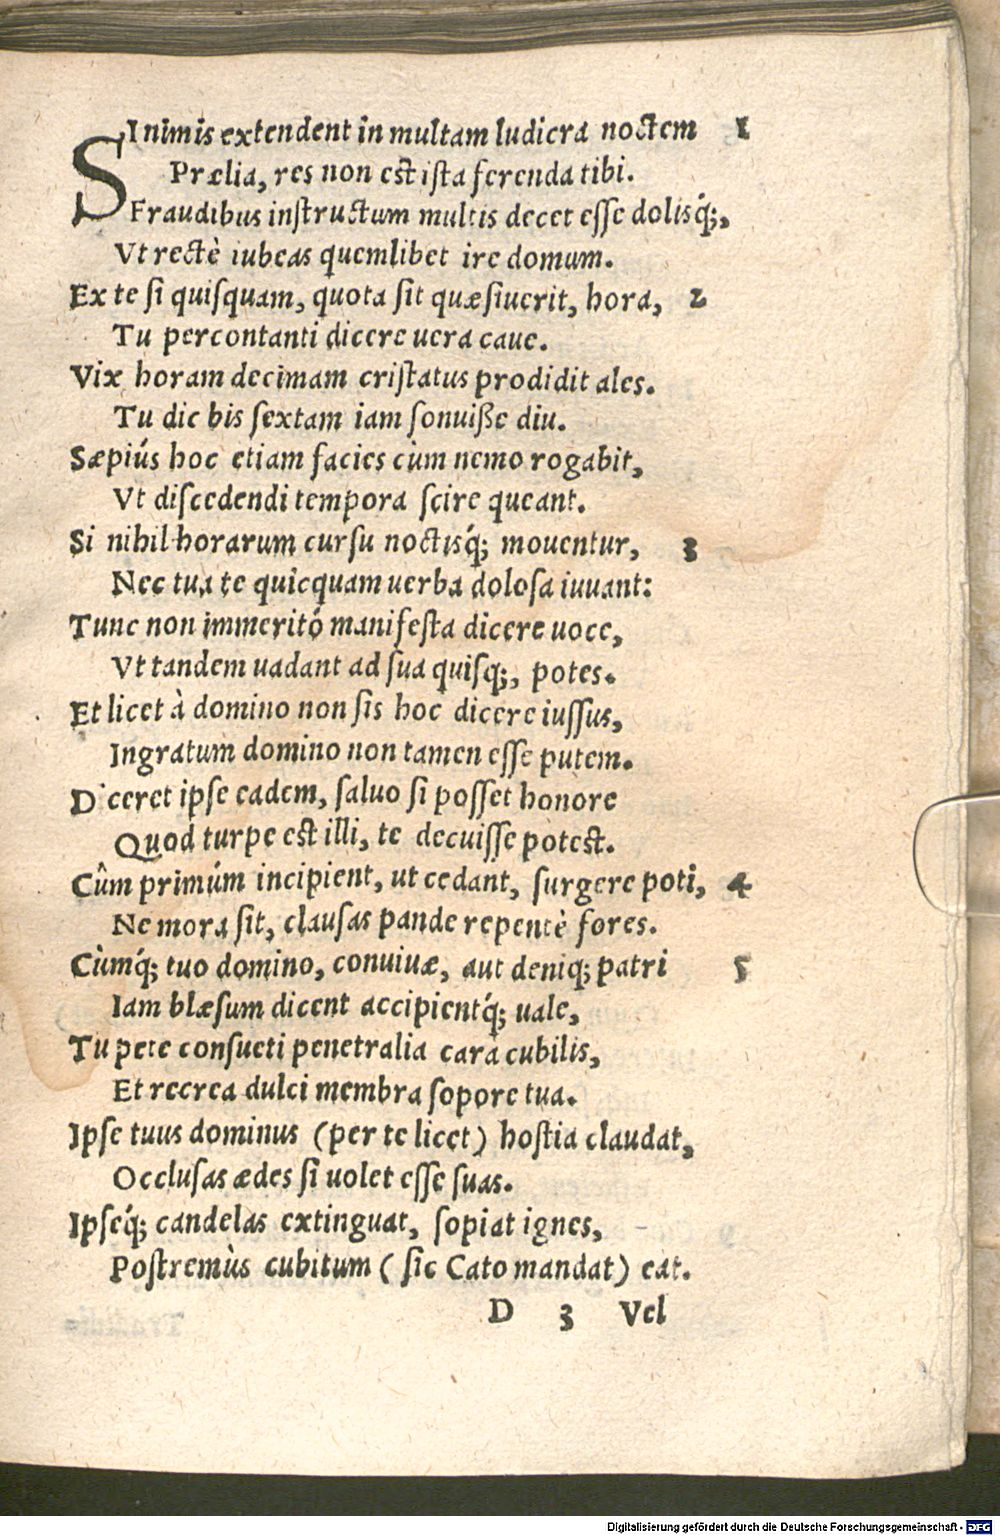 SI nimis extendent in multam ludicra noctem 1
Prælia, res non est ista ferenda tibi.
Fraudibus instructum multis decet esse dolisq́;,
Vt rectè iubeas quemlibet ire domum.
Ex te si quisquam, quota sit quæsiuerit, hora, 2
Tu percontanti dicere uera caue.
Vix horam decimam cristatus prodidit ales.
Tu dic bis sextam iam sonuiße diu.
Sæpiús hoc etiam facies cùm nemo rogabit,
Vt discedendi tempora scire queant.
Si nihil horarum cursu noctisq́; mouentur, 3
Nec tua te quicquam uerba dolosa iuuant:
Tunc non immeritó manifesta dicere uoce,
Vt tandem uadant ad sua quisq;, potes.
Et licet à domino non sis hoc dicere iussus,
Ingratum domino non tamen esse putem.
Diceret ipse eadem, saluo si posset honore
Quod turpe est illi, te decuisse potest.
Cûm primúm incipient, ut cedant, surgere poti, 4
Ne mora sit, clausas pande repentè fores.
Cùmq́; tuo domino, conuiuæ, aut deniq; patri 5
Iam blæsum dicent accipientq́; uale,
Tu pete consueti penetralia cara cubilis,
Et recrea dulci membra sopore tua.
Ipse tuus dominus (per te licet) hostia claudat,
Occlusas ædes si uolet esse suas.
Ipseq́; candelas extinguat, sopiat ignes,
Postremùs cubitum (sic Cato mandat) eat.
D 3 Vel
Digitalisierung gefördert durch die Deutsche Forschungsgemeinschaft - DFG